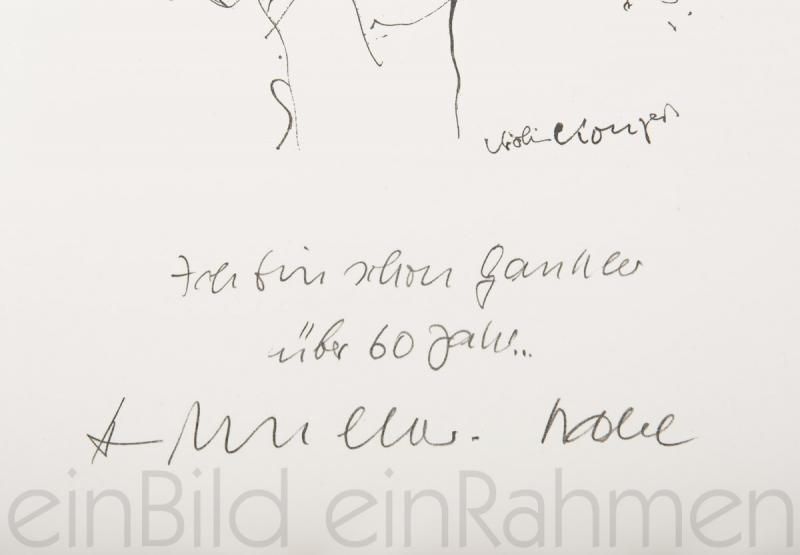 Violin Konzert
Ich bin schon Gaukler
über 60 Jahre..
A. Müller. Broke
einBild einRahmen